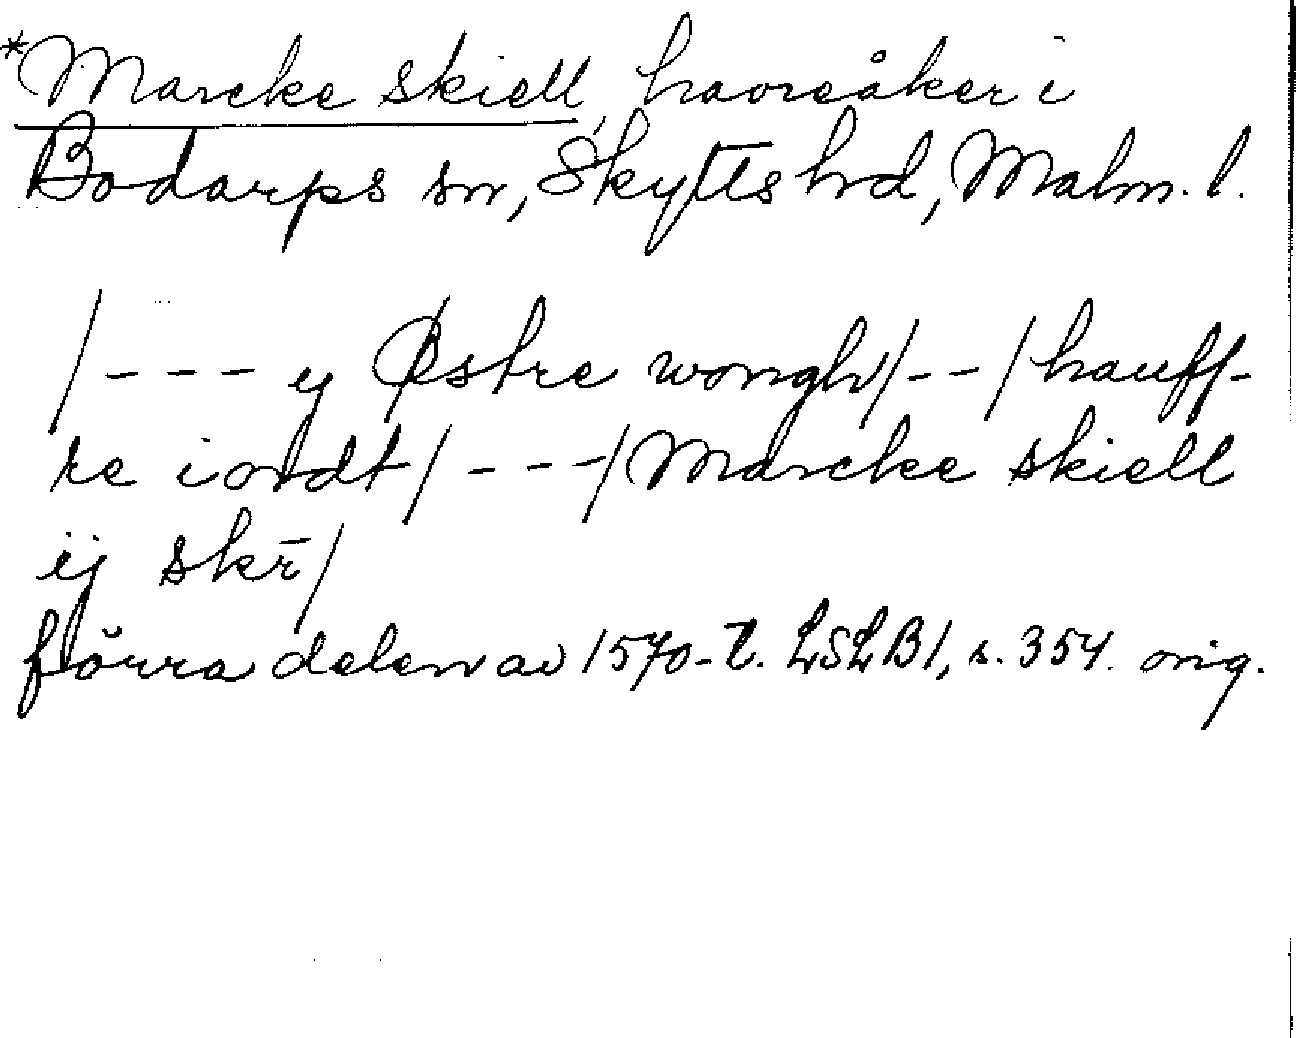 *Marcke skiell, havreåker i
Bodarps sn, Skytts hrd, Malm. l.
/--- y Østre wongh/--/hauff-
re iordt/---/Marcke skiell
ij skr̄/
förra delen av 1570-t. LSLB1, s. 354. orig.